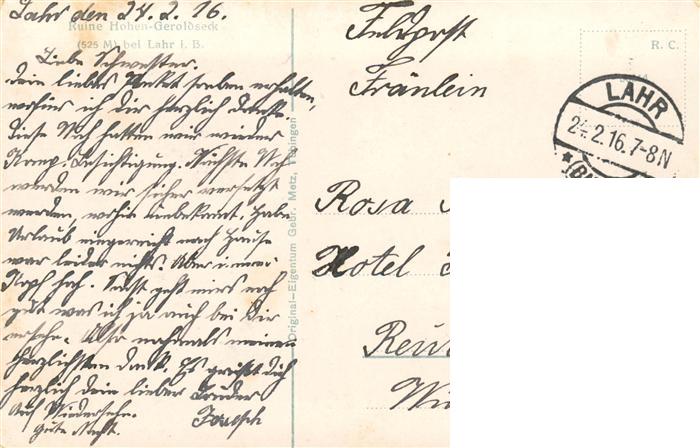 Lahr den 24.2.16.
Ruine Hohen-Geroldseck
(525 M) bei Lahr i. B.
Liebe Schwester.
Dein liebes Packet soeben erhalten,
wofür ich dir herzlich danke.
Diese Woch hatten wir wieder
Komp. Besichtigung. Nächste Woch
werden wir sicher versetzt
werden, wohin unbekant. Habe
Urlaub eingereicht nach Hause
war leider nichts. Aber immer
Kopf hoh. Sonst geht mirs noch
gut was ich ja auch bei Dir
ersehe. Also nochmals meinen
herzlichsten Dank. Es grüßt dich
herzlich dein lieber Bruder
Auf Wiedersehn. Joseph
Gute Nacht.
Original-Eigentum Gebr. Metz, Tübingen
Feldpost
Fräulein
R. C.
LAHR
24.2.16.7-8N
Rosa
Hotel